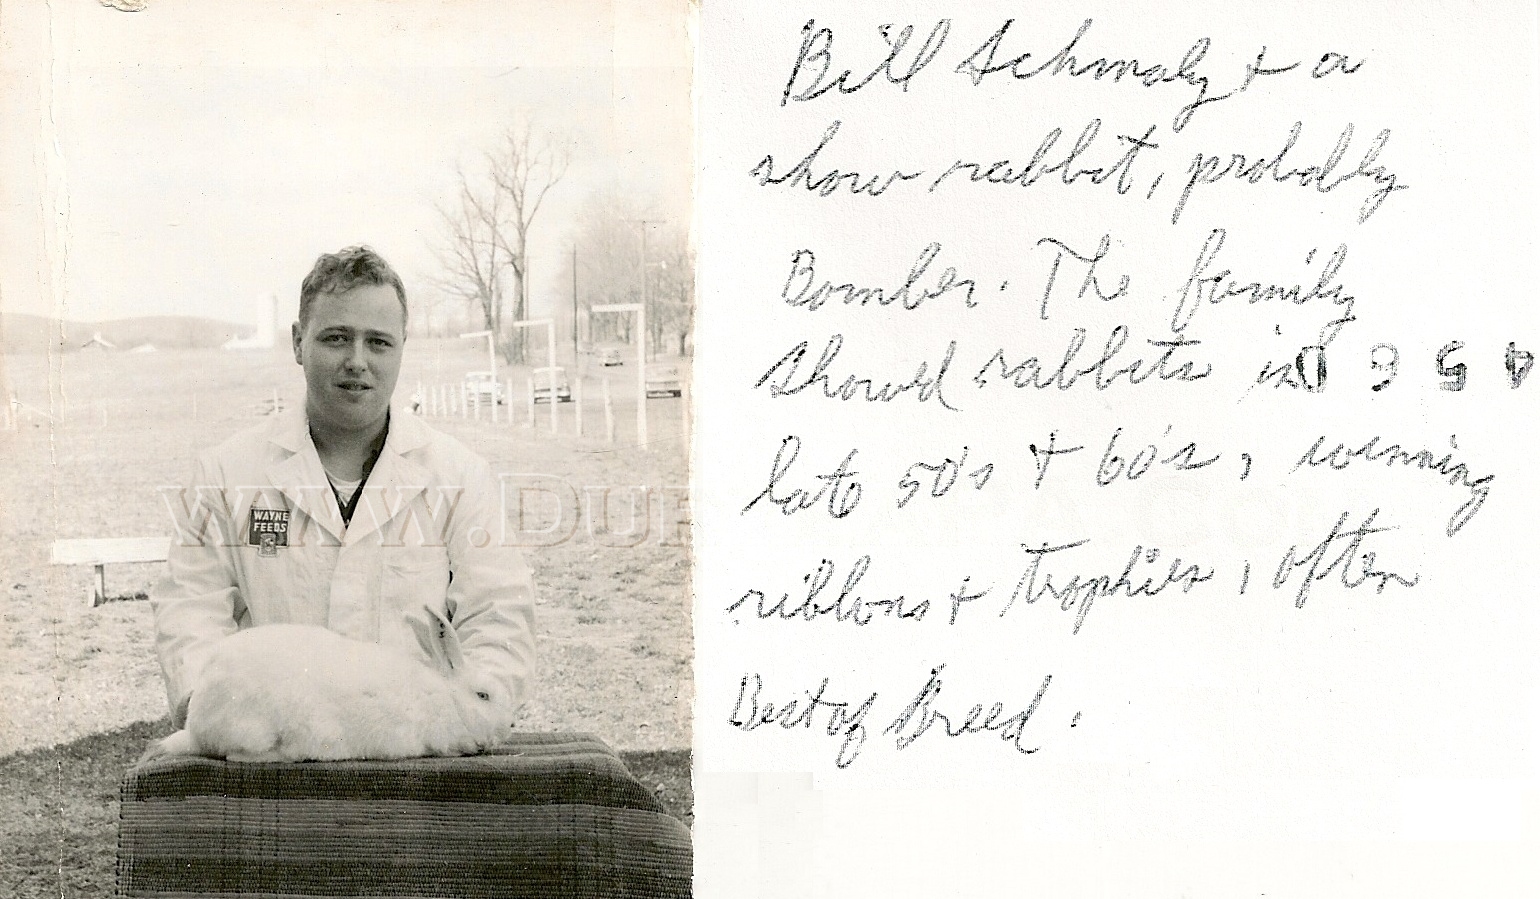 WAYNE
FEEDS
www.Dur
Bill Schmaly + a
show rabbit, probably
Bomber. The family
showed rabbits in
late 50's + 60's, winning
ribbons + trophies, often
Best of Breed.